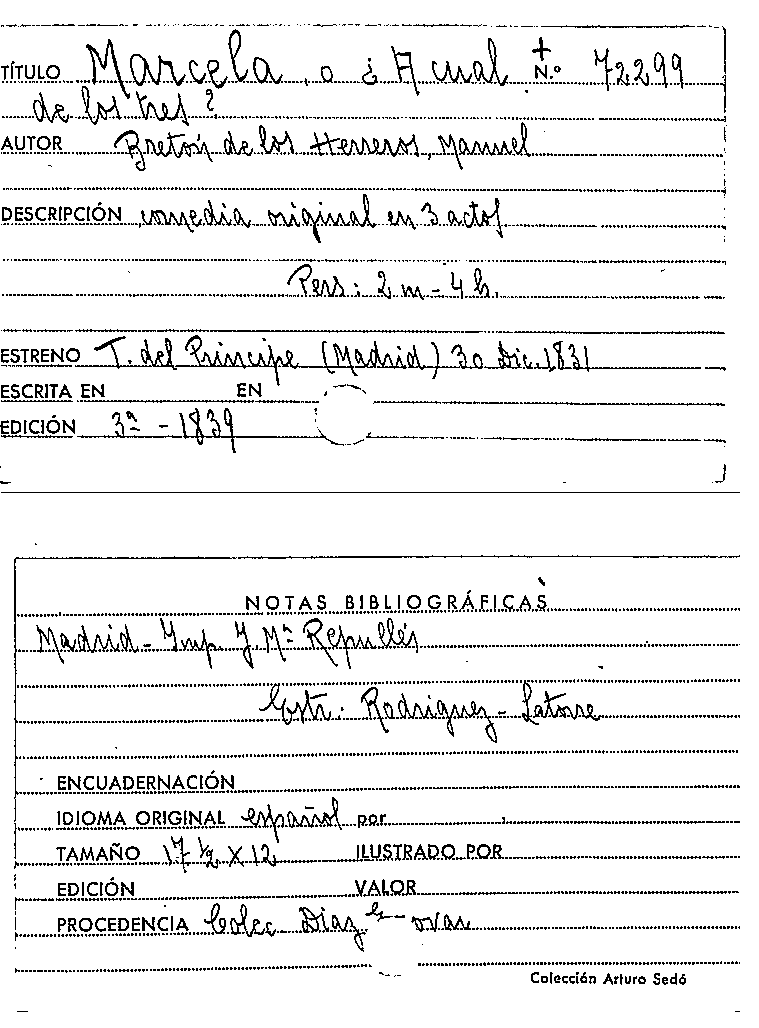 TÍTULO Marcela, o ¿A cual + N.º 72299
de los tres?
AUTOR Bretón de los Herreros, Manuel
DESCRIPCIÓN comedia original en 3 actos
Pers: 2 m - 4 h.
ESTRENO T. del Principe (Madrid) 30 Dic. 1831
ESCRITA EN EN
EDICIÓN 3ª - 1839
NOTAS BIBLIOGRÁFICAS
Madrid - Imp. J. Mª Repullés
Estr: Rodriguez - Latorre
ENCUADERNACIÓN
IDIOMA ORIGINAL español por
TAMAÑO 17 ½ X 12 ILUSTRADO POR
EDICIÓN VALOR
PROCEDENCIA Colec. Diaz
Colección Arturo Sedó